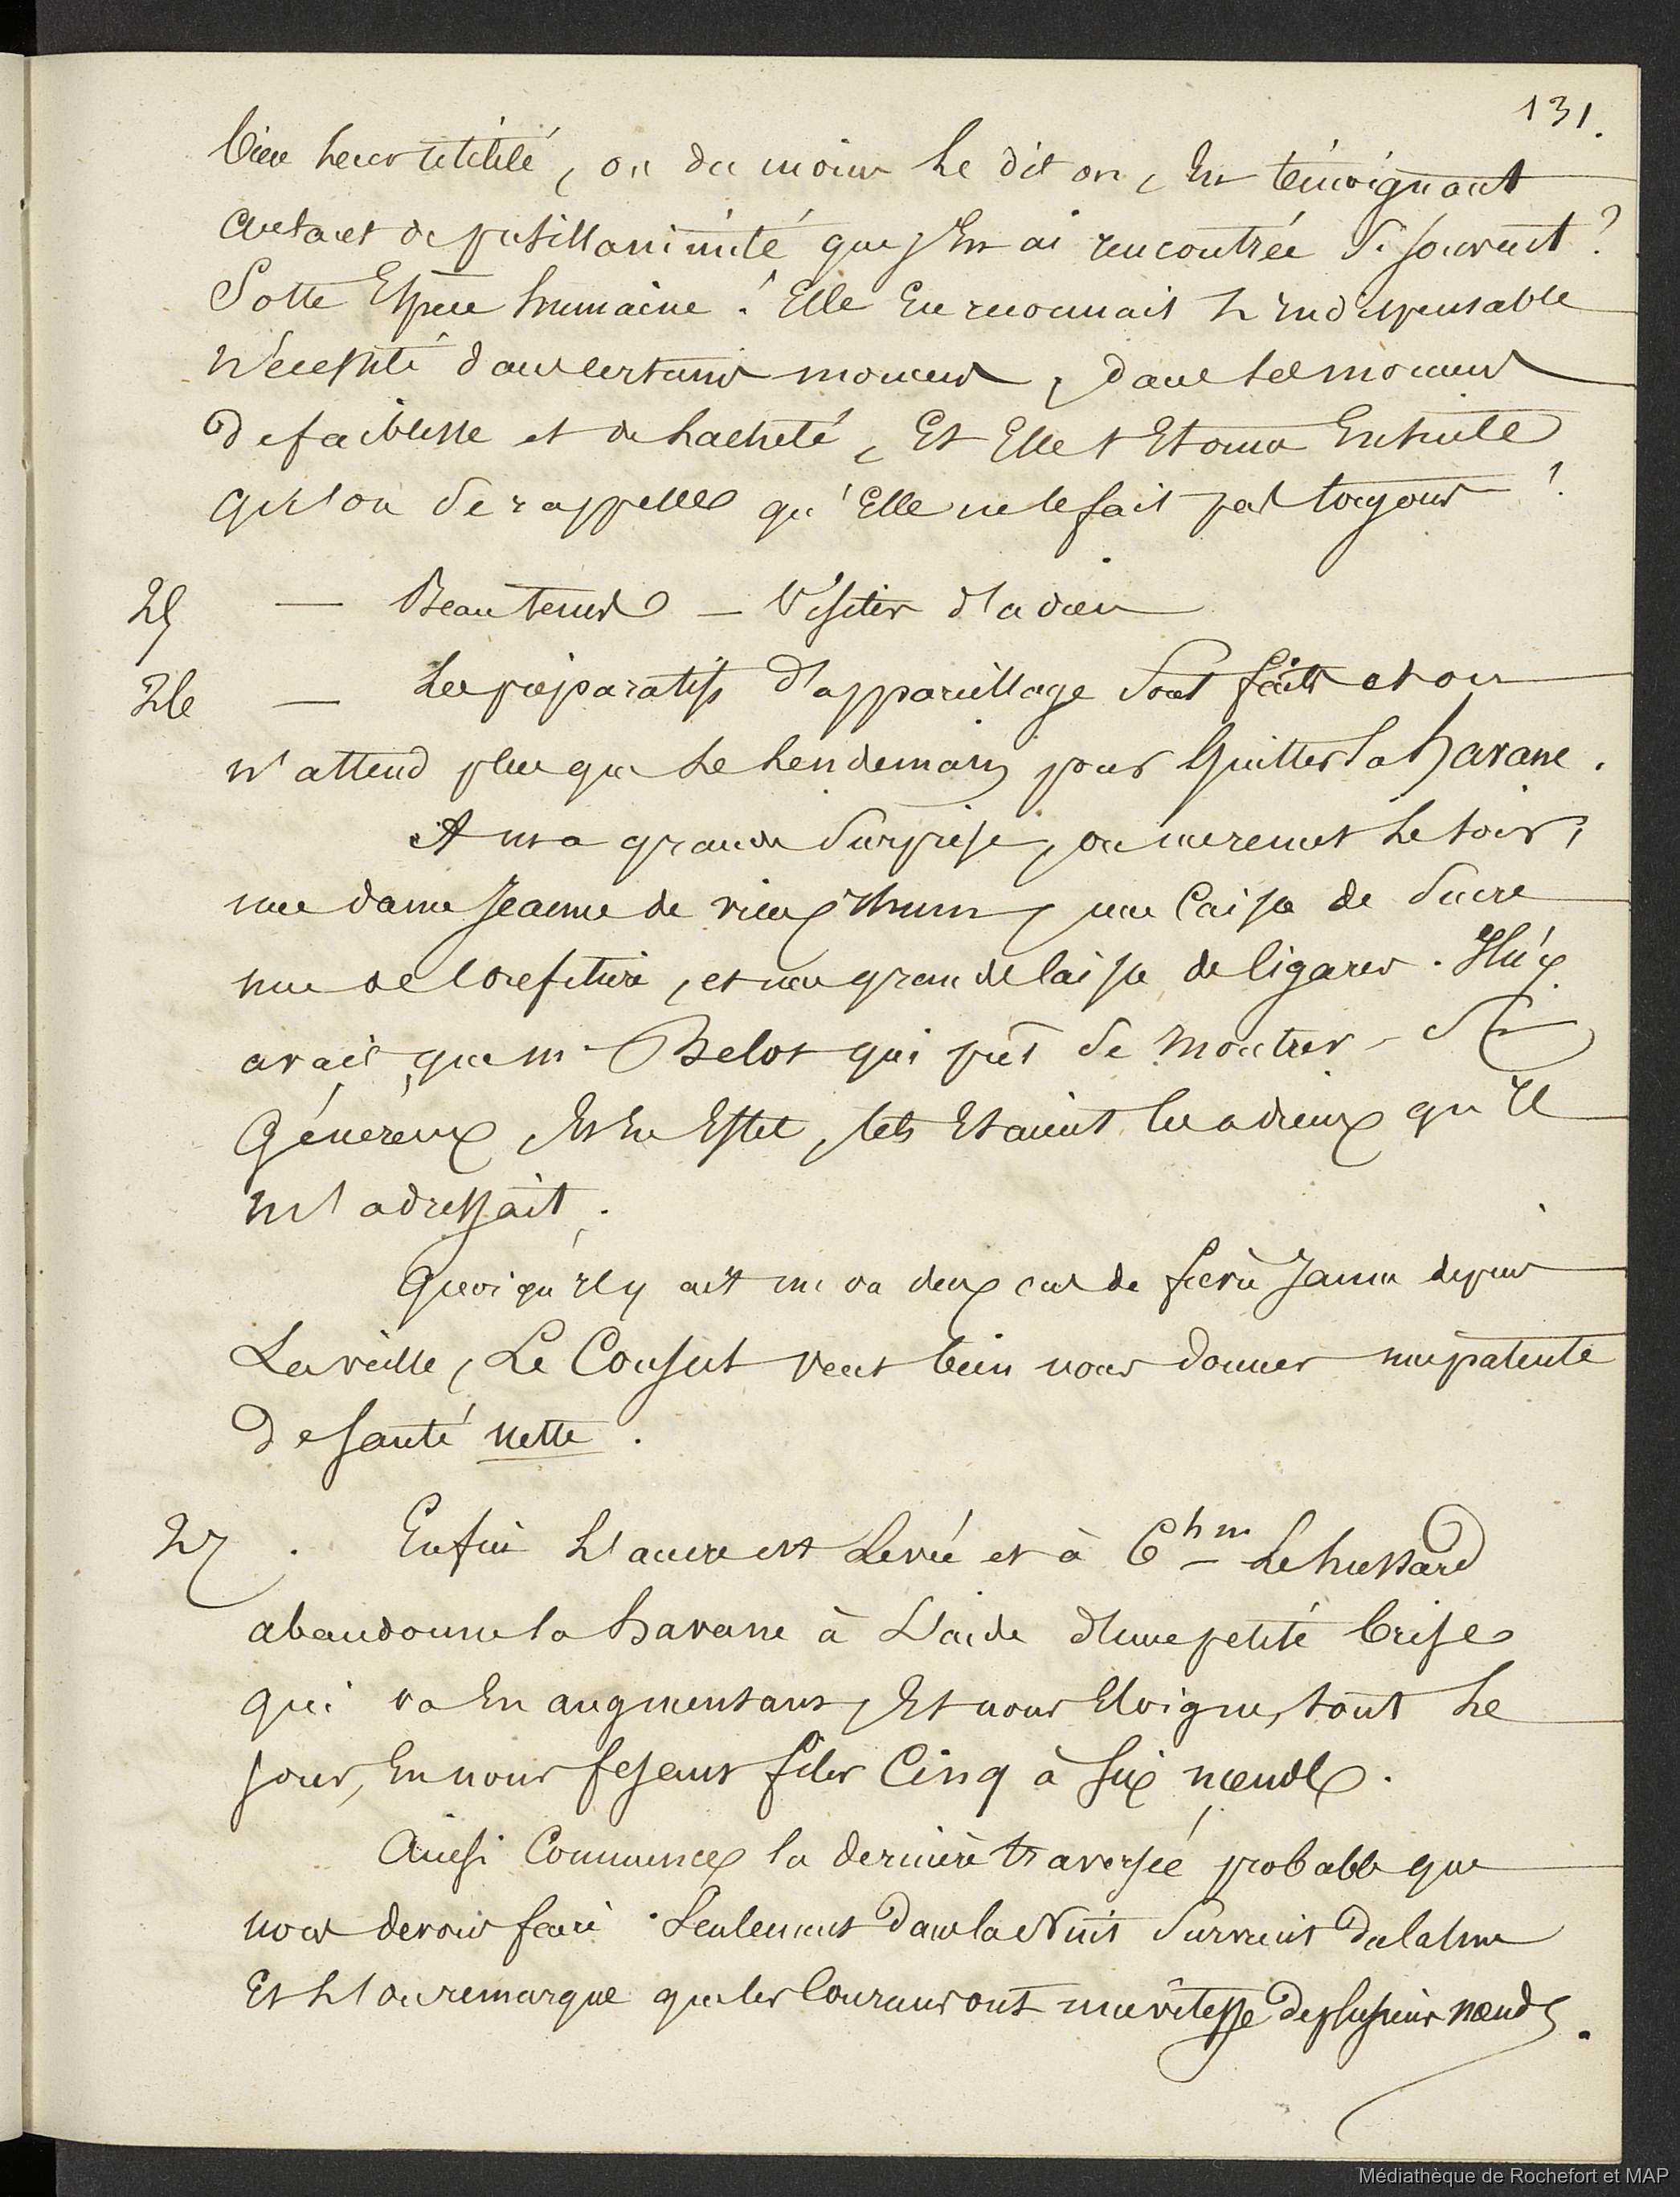 131.
bien leur utilité, ou du moins le dit on, en témoignant
autant de pusillanimité que j'en ai rencontrée si souvent?
Sotte Espèce humaine! Elle en reconnait l'indispensable
nécessité dans certains momens, dans ses momens
de faiblesse et de lacheté, Et Elle s'Etonne Ensuite
qu'on se rappelle qu'Elle ne le fait pas toujours!
25 — Beau tems — Visites d'adieu
26 — Les préparatifs d'appareillage sont faits et on
n'attend plus que le lendemain pour quitter la havane.
A ma grande surprise, on me remet le soir,
une dame Jeanne de vieux rhum, une Caisse de sucre
une de Confiture, et une grande Caisse de Cigares. Il n'y
avait que mr Belot qui pût se montrer si
Généreux, Et En Effet, tels Etaient les adieux qu'il
m'adressait.
Quoiqu'il y ait un ou deux cas de fièvre Jaune depuis
La veille, Le Consul veut bien nous donner une patente
de santé nette.
27. Enfin L'ancre est Levée et à 6 hm Le hussard
abandonne la havane à L'aide d'une petite brise
qui va En augmentant, Et nous Eloigne, tout le
jour, En nous fesant filer Cinq à six nœuds.
Ainsi Commence la dernière traversée probable que
nous devons faire. Seulement dans la Nuit survient du calme
Et L'on remarque que les Courans ont une vitesse de plusieurs nœuds.
Médiathèque de Rochefort et MAP